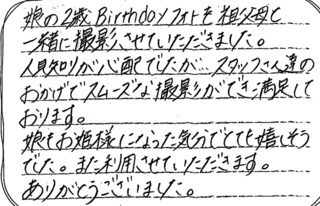 娘の2歳Birthdayフォトを祖父母と
一緒に撮影させていただきました。
人見知りが心配でしたが…スタッフさん達の
おかげでスムーズな撮影ができ満足して
おります。
娘もお姫様になった気分でとても嬉しそう
でした。また利用させていただきます。
ありがとうございました。